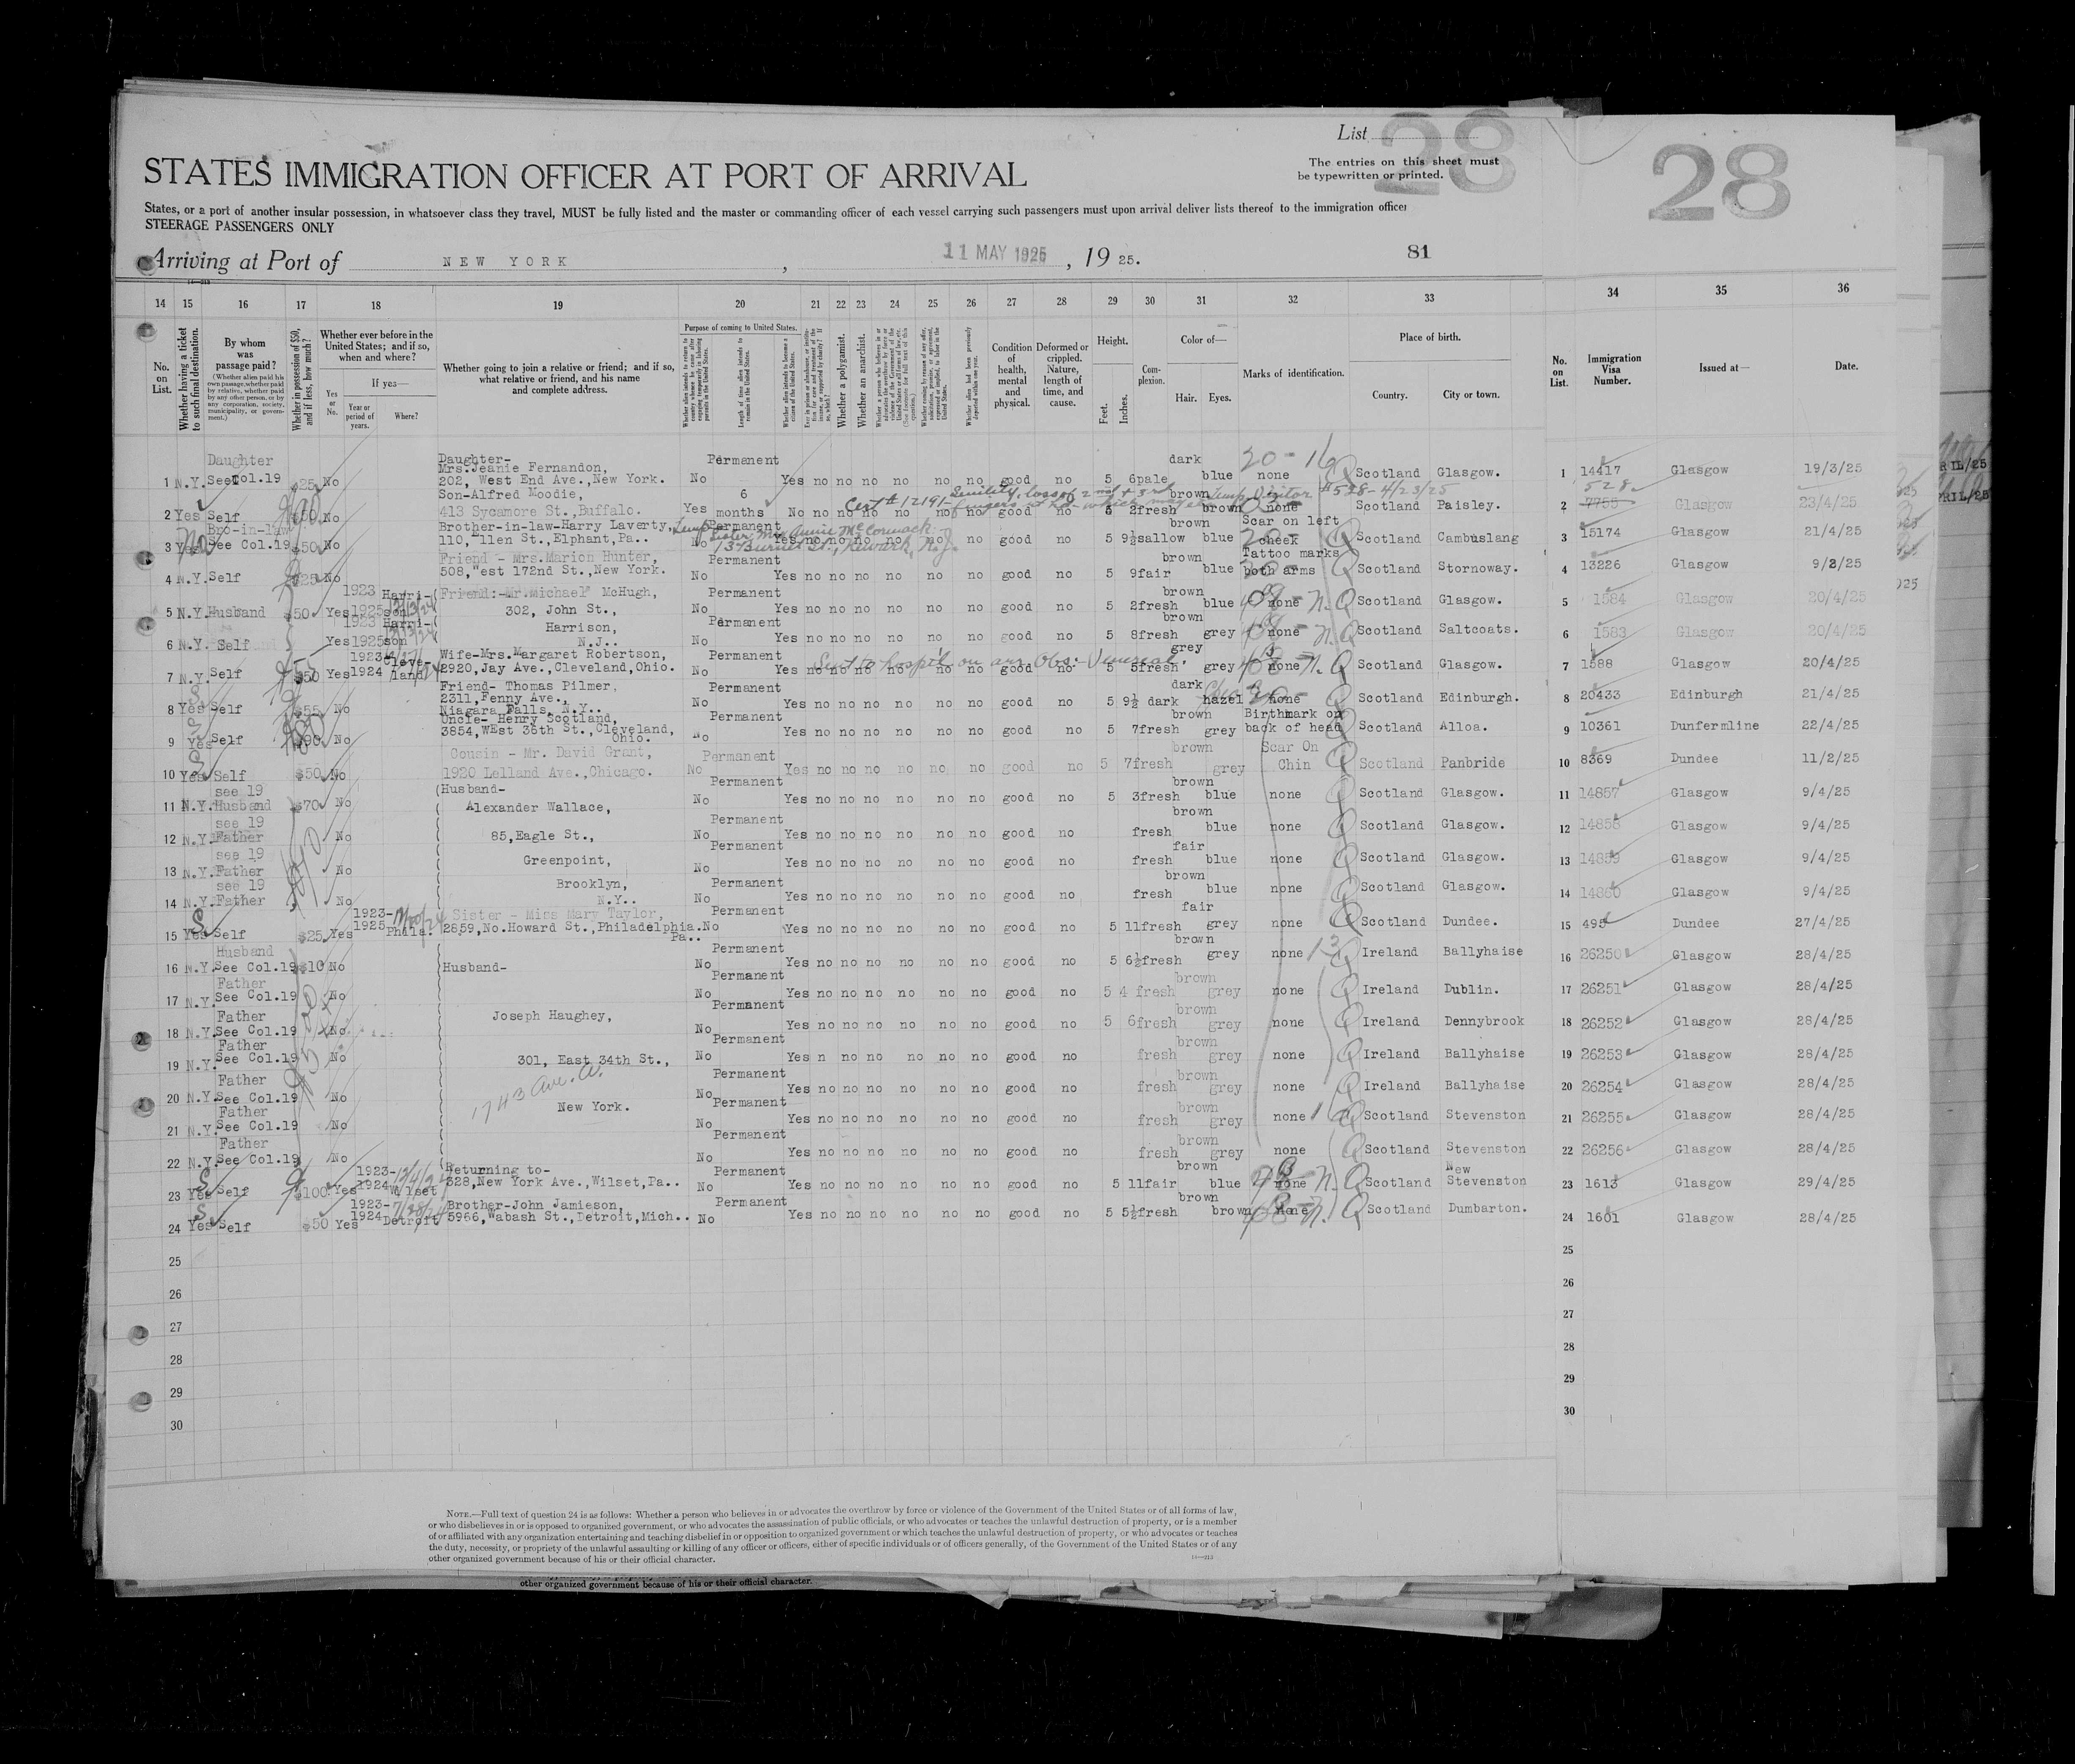 List
28
28
The entries on this sheet must
be typewritten or printed.
STATES IMMIGRATION OFFICER AT PORT OF ARRIVAL
States, or a port of another insular possession, in whatsoever class they travel, MUST be fully listed and the master or commanding officer of each vessel carrying such passengers must upon arrival deliver lists thereof to the immigration officer
STEERAGE PASSENGERS ONLY
Arriving at Port of NEW YORK , 11 MAY 1925 , 19 25. 81
14 15 16 17 18 19 20 21 22 23 24 25 26 27 28 29 30 31 32 33 34 35 36
No. on List.
Whether having a ticket to such final destination.
By whom was passage paid?
(Whether alien paid his own passage, whether paid by relative, whether paid by any other person, or by any corporation, society, municipality, or government.)
Whether in possession of $50, and if less, how much?
Whether ever before in the United States; and if so, when and where?
Yes or No.
If yes—
Year or period of years.
Where?
Whether going to join a relative or friend; and if so, what relative or friend, and his name and complete address.
Purpose of coming to United States.
Length of time alien intends to remain in the United States.
Whether alien intends to become a citizen of the United States.
Whether a polygamist.
Whether an anarchist.
Condition of health, mental and physical.
Deformed or crippled. Nature, length of time, and cause.
Height.
Feet. Inches.
Complexion.
Color of—
Hair. Eyes.
Marks of identification.
Place of birth.
Country. City or town.
No. on List.
Immigration Visa Number.
Issued at—
Date.
Daughter Daughter- Permanent dark 20-16
Mrs.Jeanie Fernandon,
1 N.Y. See Col.19 $25 No 202, West End Ave.,New York. No Yes no no no no no no good no 5 6 pale blue none Scotland Glasgow. 1 14417 Glasgow 19/3/25
Son-Alfred Moodie, 6 Cert # 12191- Senility, loss of 2nd & 3rd brown Temp Visitor #528-4/23/25 528
2 Yes Self $50 No 413 Sycamore St.,Buffalo. Yes months No no no no no no no good no 5 2 fresh brown none Scotland Paisley. 2 7755 Glasgow 23/4/25
Bro-in-law Brother-in-law-Harry Laverty, Permanent brown Scar on left
Sister Mrs Annie McCormack
3 Yes No See Col.19 $50 No 110, Allen St.,Elphant,Pa.. No Yes no no no no no no good no 5 9½ sallow blue cheek Scotland Cambuslang 3 15174 Glasgow 21/4/25
13 Burnet St., Newark, N.J.
Friend - Mrs.Marion Hunter, Permanent brown Tattoo marks
4 N.Y. Self $25 No 508,West 172nd St.,New York. No Yes no no no no no no good no 5 9 fair blue both arms Scotland Stornoway. 4 13226 Glasgow 9/2/25
1923 Harri- Friend:-Mr.michael McHugh, Permanent brown
5 N.Y. Husband $50 Yes 1925 son 302, John St., No Yes no no no no no no good no 5 2 fresh blue none Scotland Glasgow. 5 1584 Glasgow 20/4/25
1923 Harri- Harrison, Permanent brown
6 N.Y. Self Yes 1925 son N.J.. No Yes no no no no no no good no 5 8 fresh grey none Scotland Saltcoats. 6 1583 Glasgow 20/4/25
1923- Cleve- Wife-Mrs.Margaret Robertson, Permanent Sent to hosp'l on arr. Obs:- Venereal. grey
7 N.Y. Self $50 Yes 1924 land 2920,Jay Ave.,Cleveland,Ohio. No Yes no no no no no no good no 5 5 fresh grey none Scotland Glasgow. 7 1588 Glasgow 20/4/25
Friend- Thomas Pilmer, Permanent dark
2311,Fenny Ave.,
8 Yes Self $55 No Niagara Falls, N.Y.. No Yes no no no no no no good no 5 9½ dark hazel none Scotland Edinburgh. 8 20433 Edinburgh 21/4/25
Uncle- Henry Scotland, Permanent brown Birthmark on
9 Yes Self $90 No 3854,WEst 36th St.,Cleveland, Ohio. No Yes no no no no no no good no 5 7 fresh grey back of head Scotland Alloa. 9 10361 Dunfermline 22/4/25
Cousin - Mr. David Grant, Permanent brown Scar On
10 Yes Self $50 No 1920 Lelland Ave.,Chicago. No Yes no no no no no no good no 5 7 fresh grey Chin Scotland Panbride 10 8369 Dundee 11/2/25
see 19 Husband- Permanent brown
11 N.Y. Husband $70 No Alexander Wallace, No Yes no no no no no no good no 5 3 fresh blue none Scotland Glasgow. 11 14857 Glasgow 9/4/25
see 19 Permanent brown
12 N.Y. Father No 85,Eagle St., No Yes no no no no no no good no fresh blue none Scotland Glasgow. 12 14858 Glasgow 9/4/25
see 19 Permanent fair
13 N.Y. Father No Greenpoint, No Yes no no no no no no good no fresh blue none Scotland Glasgow. 13 14859 Glasgow 9/4/25
see 19 Brooklyn, Permanent brown
14 N.Y. Father No N.Y.. No Yes no no no no no no good no fresh blue none Scotland Glasgow. 14 14860 Glasgow 9/4/25
1923- Sister - Miss Mary Taylor, Permanent fair
15 Yes Self $25 Yes 1925 Phila. 2859,No.Howard St.,Philadelphia. Pa.. No Yes no no no no no no good no 5 11 fresh grey none Scotland Dundee. 15 495 Dundee 27/4/25
Husband Permanent brown
16 N.Y. See Col.19 $10 No Husband- No Yes no no no no no no good no 5 6½ fresh grey none Ireland Ballyhaise 16 26250 Glasgow 28/4/25
Father Permanent brown
17 N.Y. See Col.19 No No Yes no no no no no no good no 5 4 fresh grey none Ireland Dublin. 17 26251 Glasgow 28/4/25
Father Permanent brown
18 N.Y. See Col.19 No Joseph Haughey, No Yes no no no no no no good no 5 6 fresh grey none Ireland Dennybrook 18 26252 Glasgow 28/4/25
Father Permanent brown
19 N.Y. See Col.19 No 301, East 34th St., No Yes n no no no no no good no fresh grey none Ireland Ballyhaise 19 26253 Glasgow 28/4/25
Father 1743 Ave. A. Permanent brown
20 N.Y. See Col.19 No No Yes no no no no no no good no fresh grey none Ireland Ballyhaise 20 26254 Glasgow 28/4/25
Father New York. Permanent brown
21 N.Y. See Col.19 No No Yes no no no no no no good no fresh grey none Scotland Stevenston 21 26255 Glasgow 28/4/25
Father Permanent brown
22 N.Y. See Col.19 No No Yes no no no no no no good no fresh grey none Scotland Stevenston 22 26256 Glasgow 28/4/25
1923- Returning to- Permanent brown New
23 Yes Self $100 Yes 1924 Wilset 328,New York Ave.,Wilset,Pa.. No Yes no no no no no no good no 5 11 fair blue none Scotland Stevenston 23 1613 Glasgow 29/4/25
1923- Brother-John Jamieson, Permanent brown
24 Yes Self $50 Yes 1924 Detroit 5966,Wabash St.,Detroit,Mich.. No Yes no no no no no no good no 5 5½ fresh brown none Scotland Dumbarton. 24 1601 Glasgow 28/4/25
25 25
26 26
27 27
28 28
29 29
30 30
NOTE.—Full text of question 24 is as follows: Whether a person who believes in or advocates the overthrow by force or violence of the Government of the United States or of all forms of law,
or who disbelieves in or is opposed to organized government, or who advocates the assassination of public officials, or who advocates or teaches the unlawful destruction of property, or is a member
of or affiliated with any organization entertaining and teaching disbelief in or opposition to organized government or which teaches the unlawful destruction of property, or who advocates or teaches
the duty, necessity, or propriety of the unlawful assaulting or killing of any officer or officers, either of specific individuals or of officers generally, of the Government of the United States or of any
other organized government because of his or their official character.
other organized government because of his or their official character.